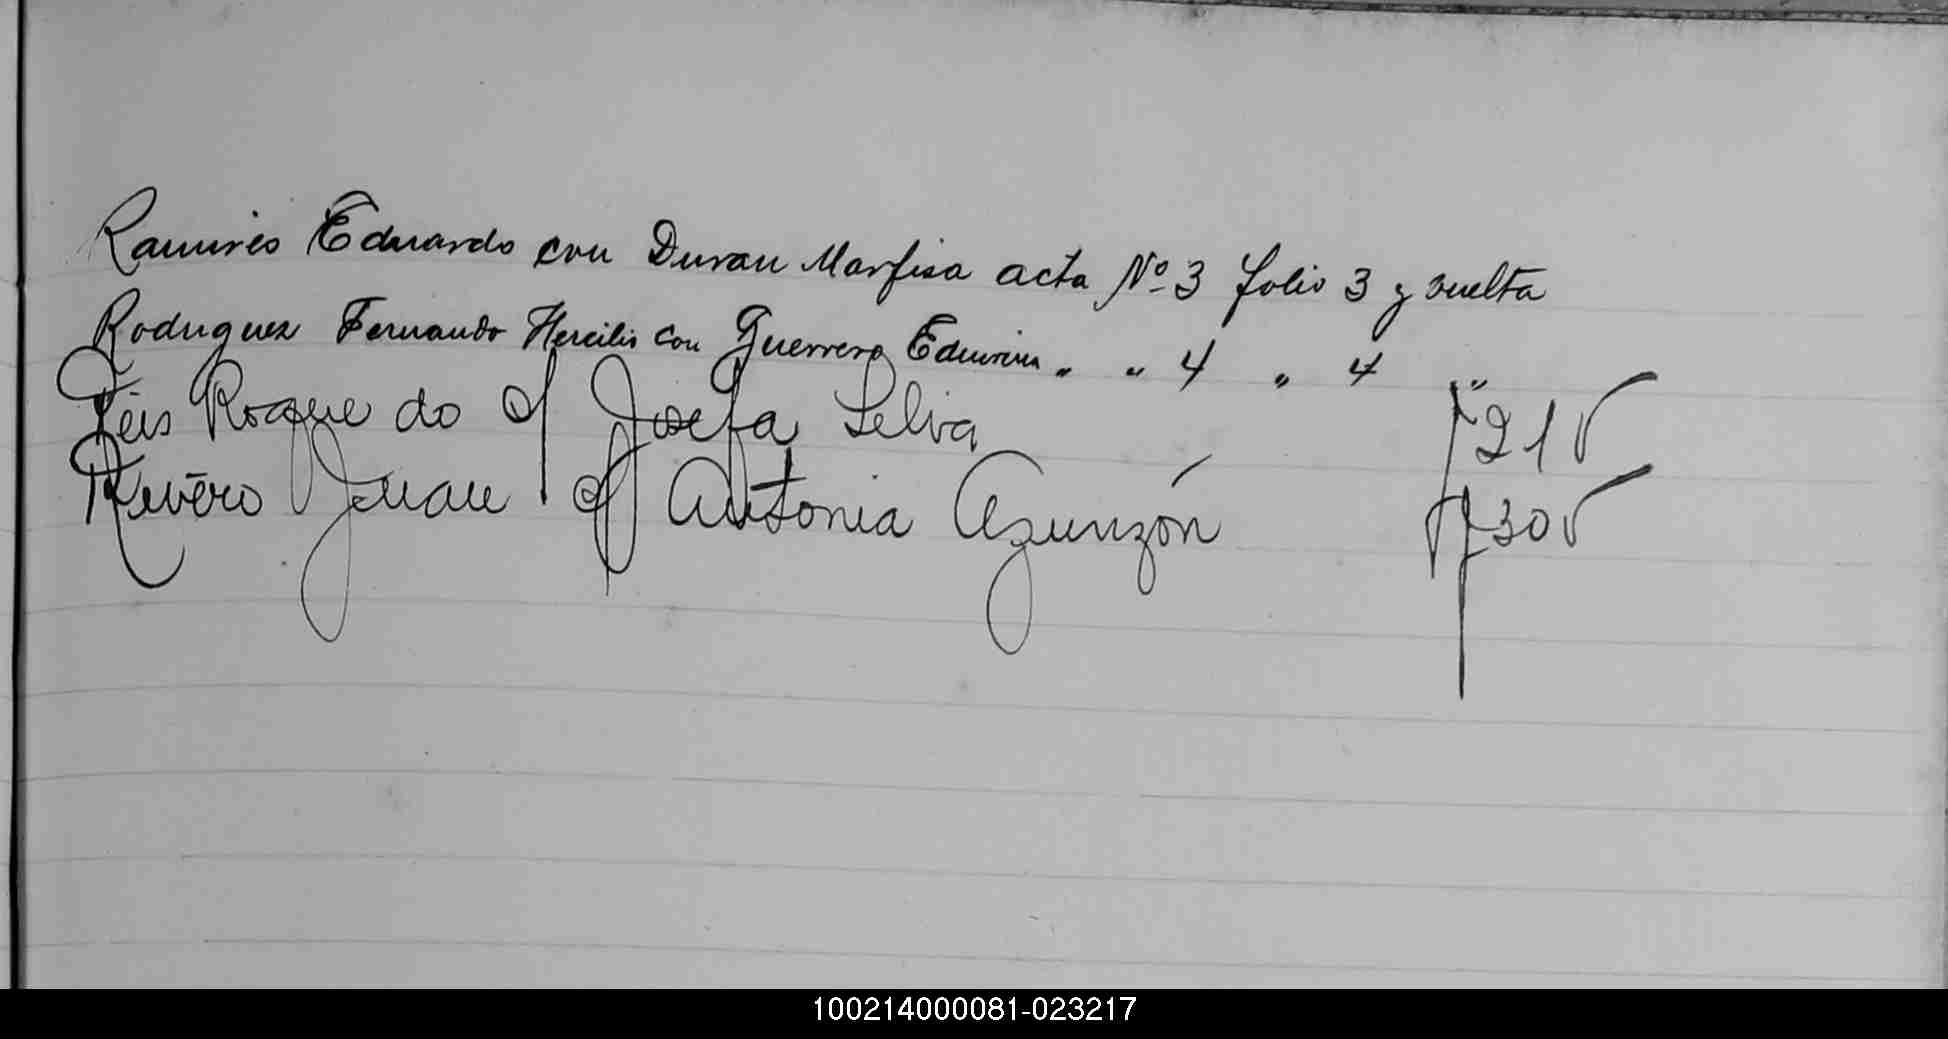 Ramires Eduardo con Duran Marfisa acta Nº 3 folio 3 y vuelta
Rodriguez Fernando Hercilio con Guerrero Edmirin " " 4 " 4 "
Réis Roque do c/ Josefa Selva f 21 v
Rivéro Juan c/ Antonia Azunzón f 30 v
100214000081-023217